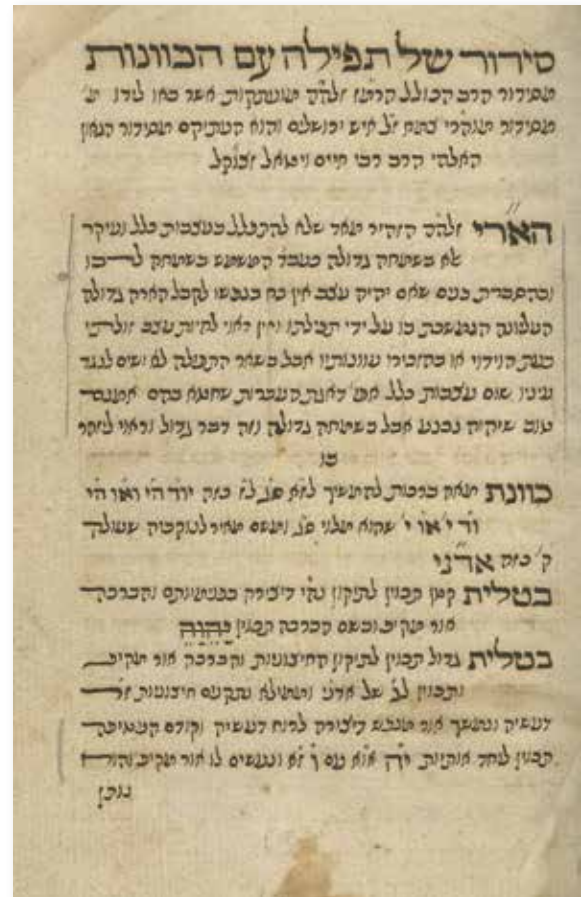 סידור של תפילה עם הכוונות
מסידור הרב הכולל הרמז זלה״ה מועתקות אשר באו לידו מ׳
מסידור מוהרי צמח ז״ל איש ירושלם והוא העתיקם מסידור הגאון
האלהי הרב רבי חיים ויטאל זצוק״ל
האר״י זלה״ה הזהיר מאד שלא להתפלל בעצבות כלל ועיקר
אם בשמחה גדולה כעבד המשמש בשמחה לרבו
ובהסברת פנים שאם יהיה עצב אין כח בנפשו לקבל הארה גדולה
העליונה הנמשכת בו על ידי תפילתו ואין ראוי להיות עצב זולתי
בעת הוידוי או בהזכירו עוונותיו אבל בשאר התפלה לא ישים לנגד
עיניו שום עצבות כלל אפי׳ דאגת העבירות שחטא בהם אמנם
טוב שיהיה נכנע אבל בשמחה גדולה וזה דבר גדול וראוי ליזהר
בו
כוונת מאה ברכות להמשיך לז״א יוד הי ואו הי
וד י׳ או י׳ שהוא ומשם תאיר לנוקביה שעולה
ק׳ כזה אדני
בטלית קטן תכוין לתיקון דיצירה בפנימיותם והברכה
אור מקיף ובשם הברכה תכוין יהוה
בטלית גדול תכוין לתיקון החיצוניות והברכה אור מקיף
ותכוין של אדני וממילא נתקנים חיצוניות
דעשיה ונמשך אור מנפש דיצירה לרוח דעשיה וקודם העטיפה
תכוין ליחד אותיות עם ונעשים לו אור מקיף